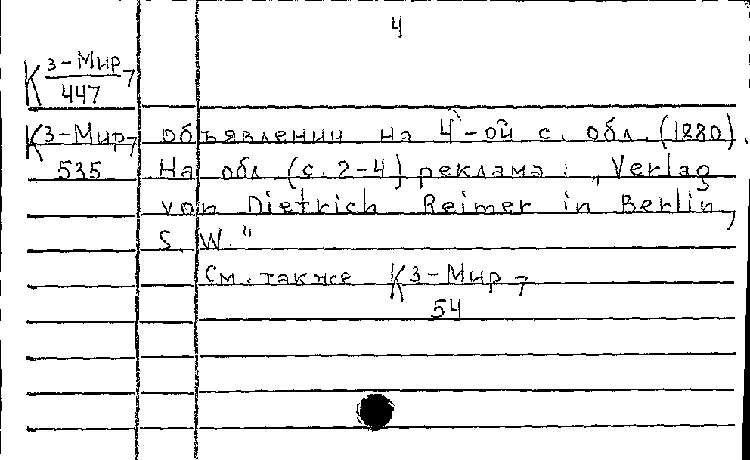 4
К 3-Мир 7
447
К 3-Мир 7
535
объявлении на 4-ой с. обл. (1880).
На обл. (с. 2-4) реклама: „Verlag
von Dietrich Reimer in Berlin,
S. W."
См. также К 3-Мир 7
54